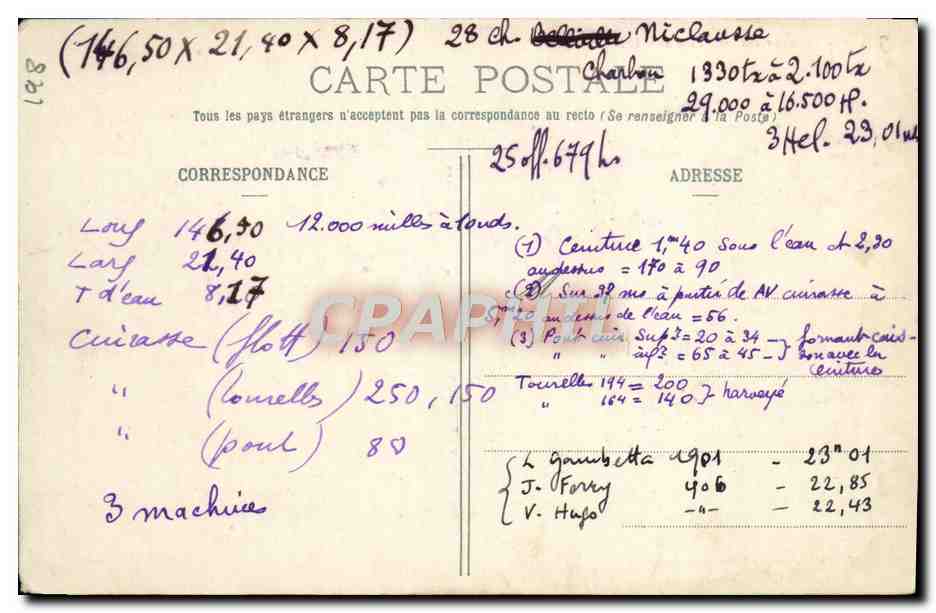 (146,50 x 21,40 x 8,17) 28 ch. Niclausse
198
CARTE POSTALE
Charbon 1330tx à 2.100tx
29.000 à 16.500 HP.
Tous les pays étrangers n'acceptent pas la correspondance au recto (Se renseigner à la Poste)
3 Hel. 23,01 nds
25 off. 679 hs
CORRESPONDANCE
Long 146,50 12.000 milles à 10 nds.
Larg 21,40
T d'eau 8,17
Cuirasse (flott) 150
" (tourelles) 250, 150
" (pont) 80
3 machines
ADRESSE
(1) Ceinture 1,m40 sous l'eau et 2,30
au dessus = 170 à 90
(2) Sur 32 ms à partir de AV cuirasse à
5,m20 au dessus de l'eau = 56.
(3) Pont cuir. Supr = 20 à 34 } formant cais-
" " infr = 65 à 45 } son avec les
ceintures
Tourelles 194 = 200 } harveyé
" 164 = 140
L Gambetta 1901 - 23n 01
J. Ferry 406 - 22,85
V. Hugo -"- - 22,43
CPAPHIL.COM